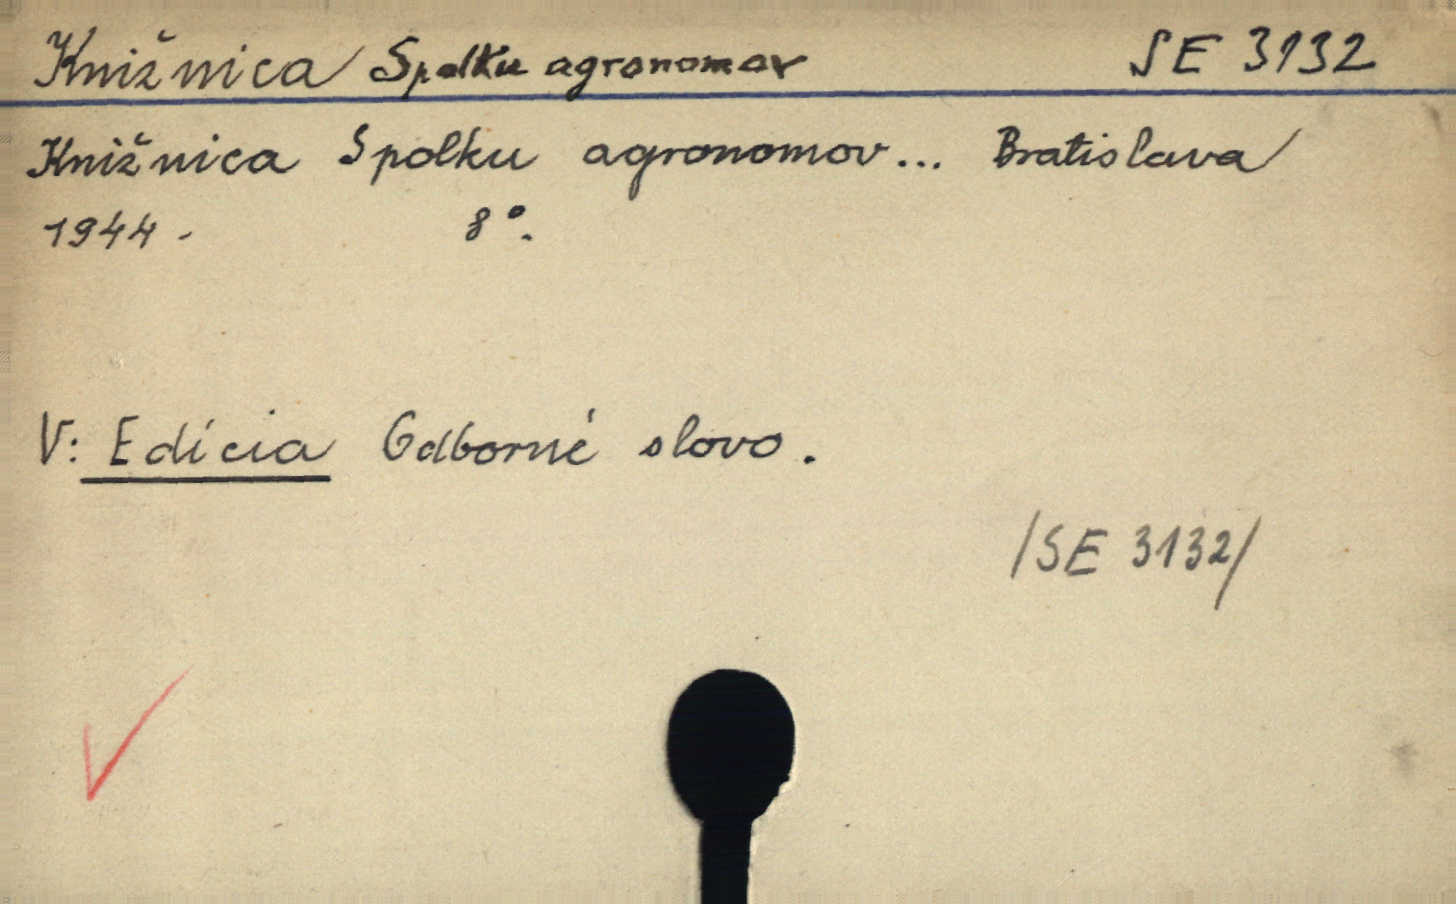 Knižnica Spolku agronomov SE 3132
Knižnica Spolku agronomov... Bratislava
1944- 8°.
V: Edícia Odborné slovo.
/SE 3132/